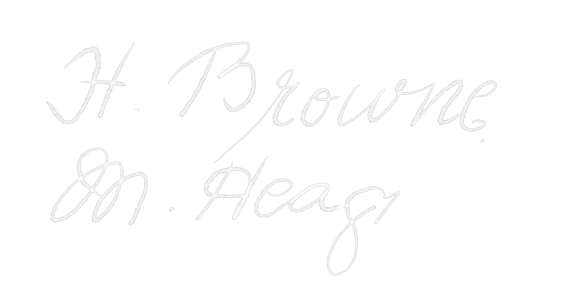 H. Browne.
M. Heagy